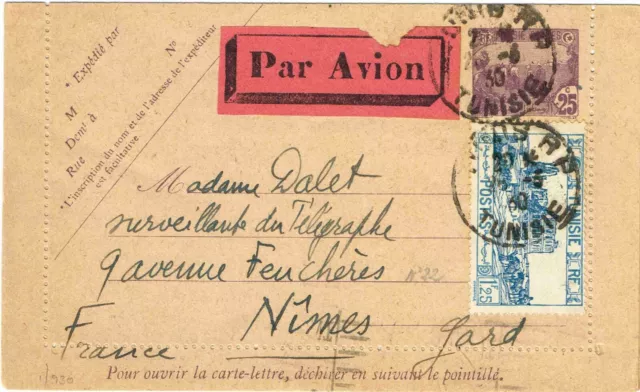 Expédié par
N°
M
Dem! à
Rue
L'inscription du nom et de l'adresse de l'expéditeur
est facultative.
Par Avion
TUNIS R.P
30
TUNISIE
25c
TUNIS R.P
30
TUNISIE
TUNISIE
POSTES
1f25
Madame Dalet
surveillante du Télégraphe
9 avenue Feuchères
N°22
Nîmes
Gard
France
1/930
Pour ouvrir la carte-lettre, déchirer en suivant le pointillé.